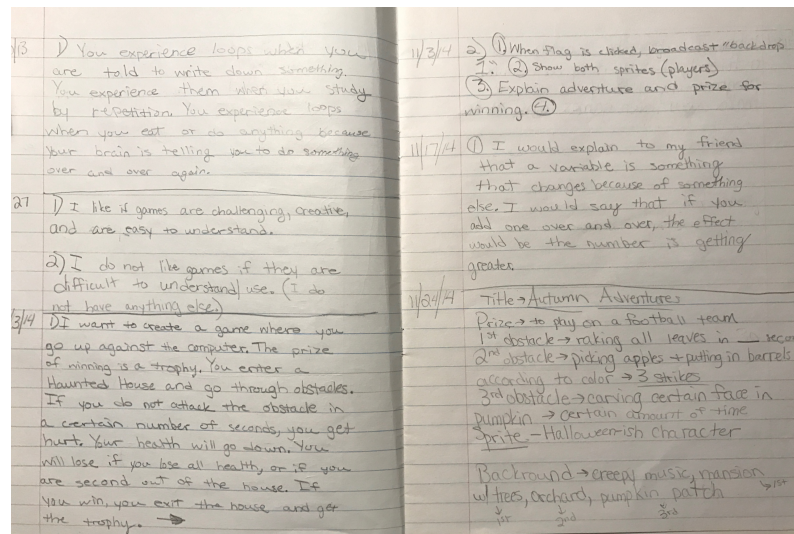 /13 1) You experience loops when you
are told to write down something.
You experience them when you study
by repetition. You experience loops
when you eat or do anything because
your brain is telling you to do something
over and over again.
27 1) I like if games are challenging, creative,
and are easy to understand.
2) I do not like games if they are
difficult to understand/use. (I do
not have anything else.)
/3/14 1) I want to create a game where you
go up against the computer. The prize
of winning is a trophy. You enter a
Haunted House and go through obstacles.
If you do not attack the obstacle in
a certain number of seconds, you get
hurt. Your health will go down. You
will lose if you lose all health, or if you
are second out of the house. If
you win, you exit the house and get
the trophy. →
11/3/14 2) ① When flag is clicked, broadcast "backdrop
1." ② Show both sprites (players)
③ Explain adventure and prize for
winning. ④
11/17/14 ① I would explain to my friend
that a variable is something
that changes because of something
else. I would say that if you
add one over and over, the effect
would be the number is getting
greater.
11/24/14 Title → Autumn Adventures
Prize → to play on a football team
1st obstacle → raking all leaves in __ secon
2nd obstacle → picking apples + putting in barrels
according to color → 3 strikes
3rd obstacle → carving certain face in
pumpkin → certain amount of time
Sprite - Halloween-ish character
Backround → creepy music, mansion
w/ trees, orchard, pumpkin patch → 1st
1st 2nd 3rd